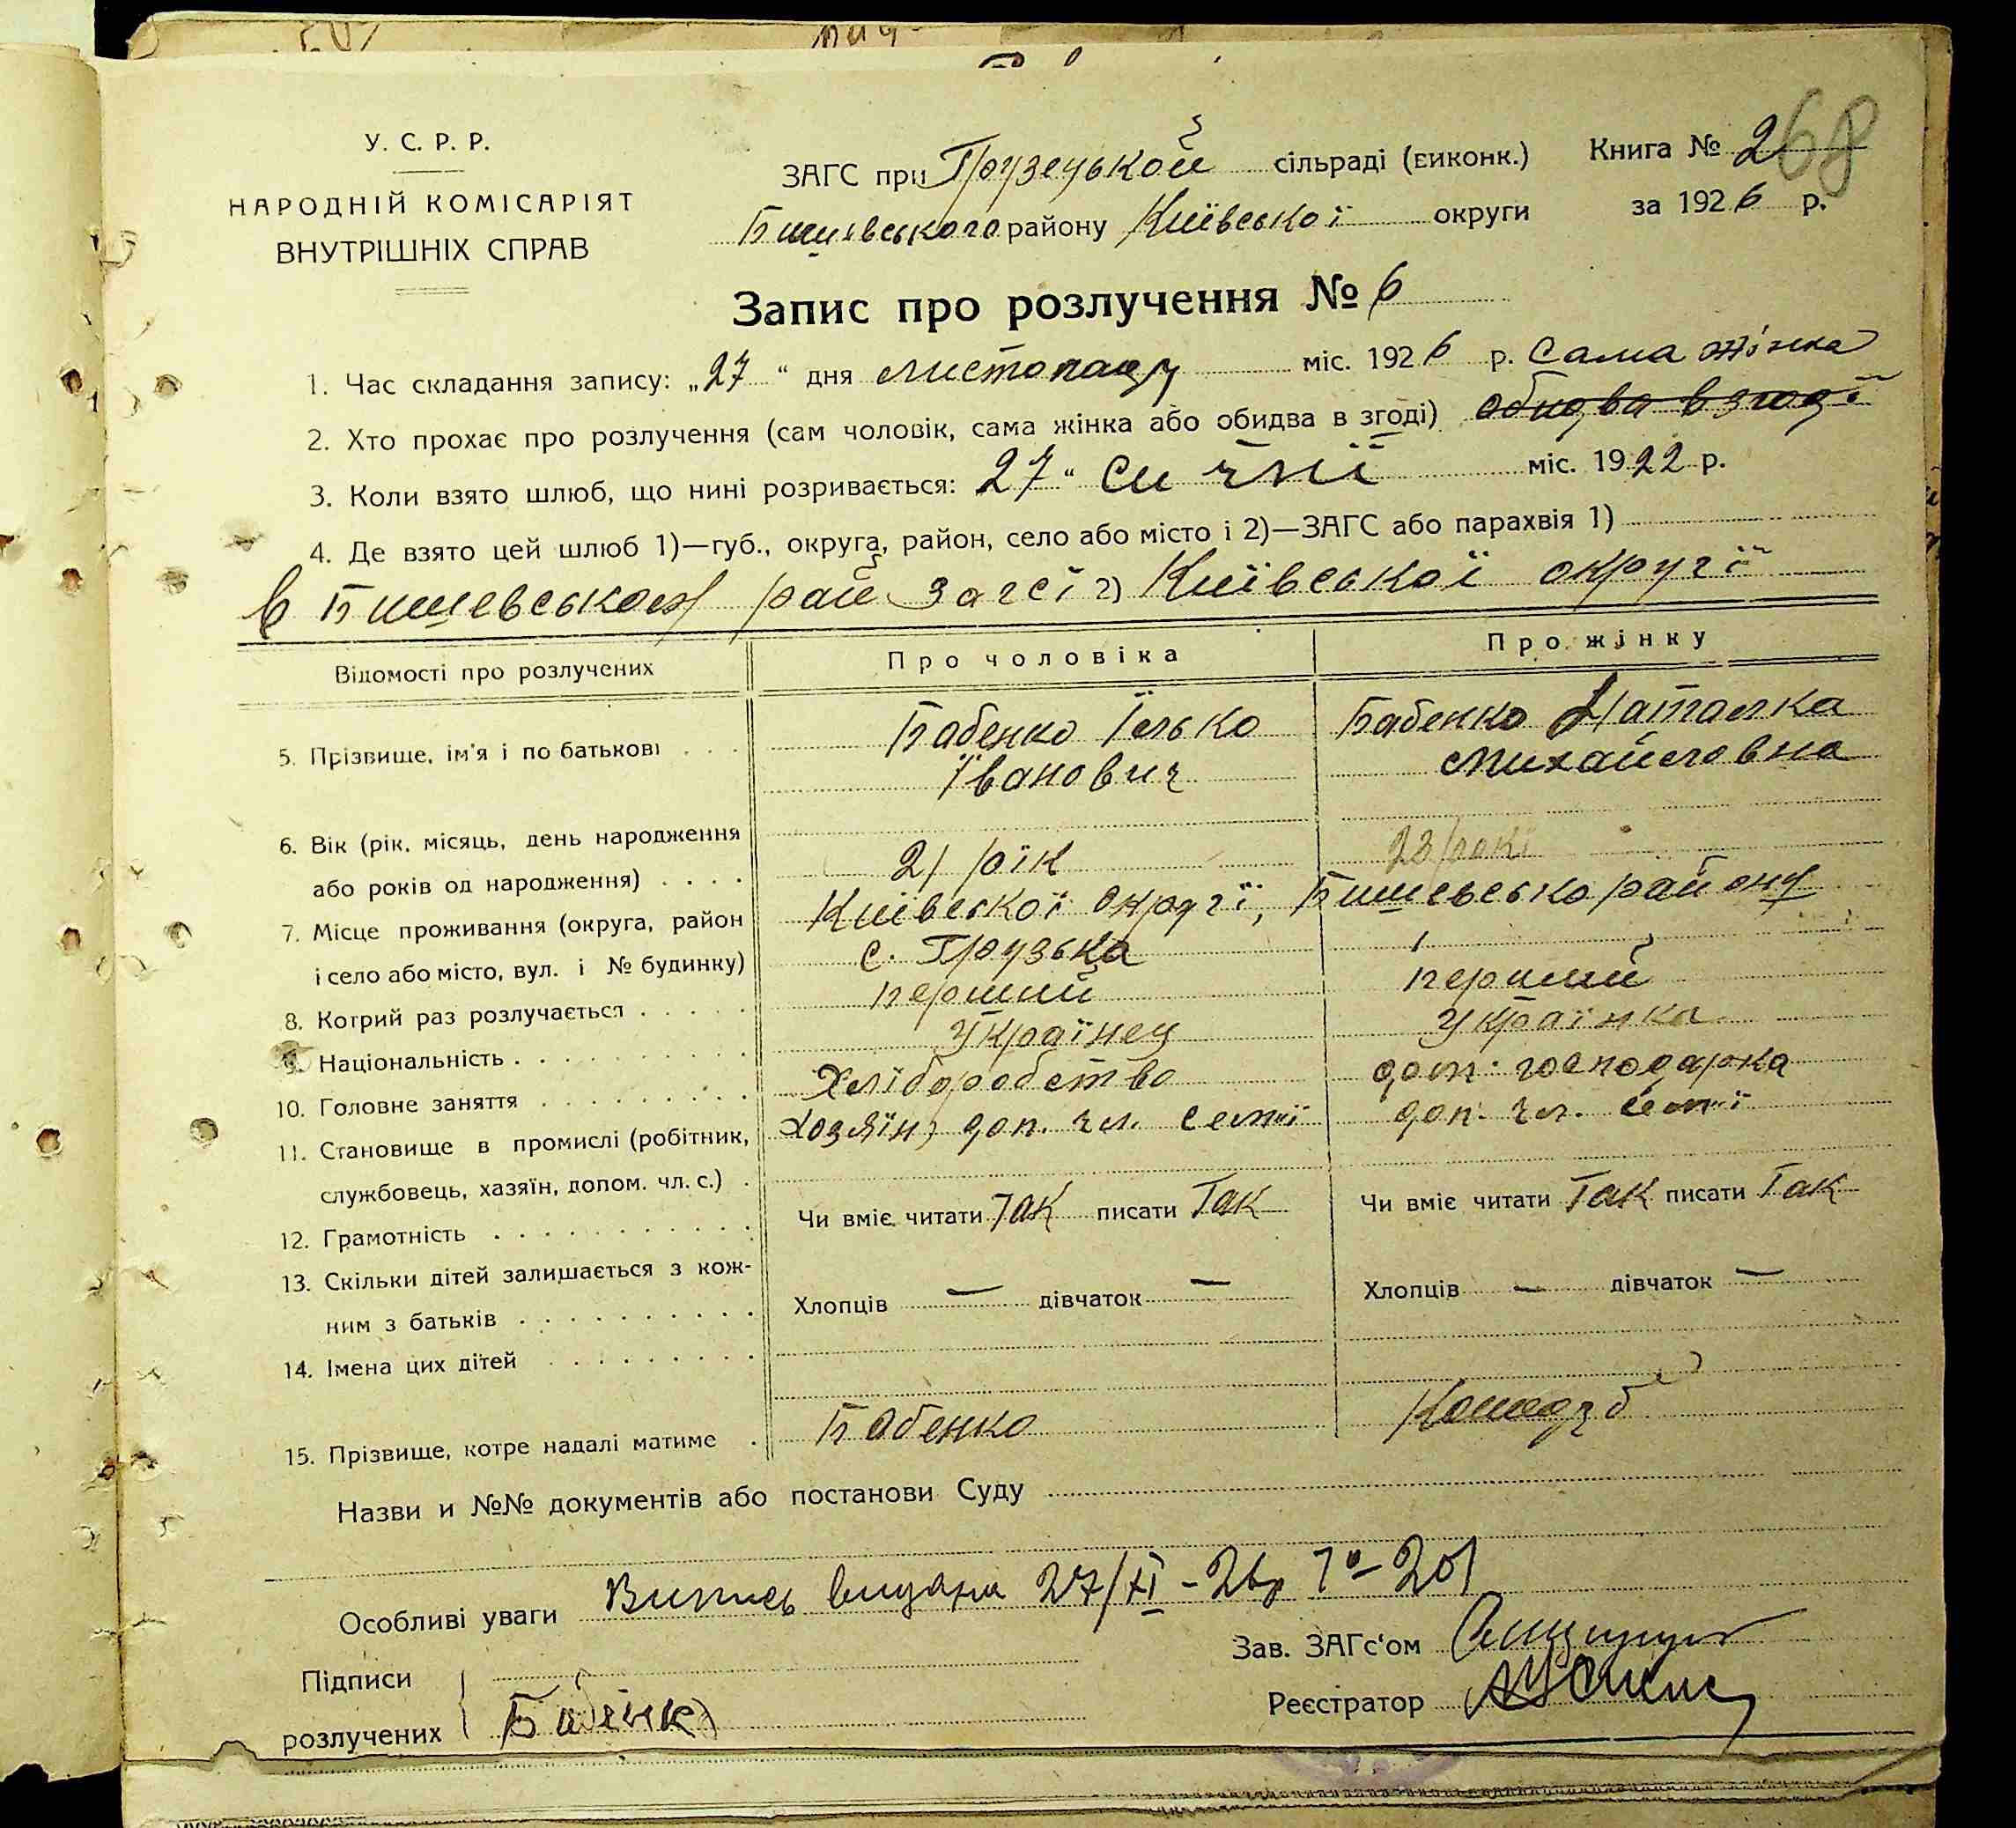 У. С. Р. Р.
НАРОДНІЙ КОМІСАРІЯТ
ВНУТРІШНІХ СПРАВ
ЗАГС при Грузецькой сільраді (виконк.) Книга № 2 68
Бишівського району Київської округи за 1926 р.
Запис про розлучення № 6
1. Час складання запису: „27“ дня листопаду міс. 1926 р. Сама жінка
2. Хто прохає про розлучення (сам чоловік, сама жінка або обидва в згоді) обидва в згоді
3. Коли взято шлюб, що нині розривається: 27“ Сичнії міс. 1922 р.
4. Де взято цей шлюб 1)—губ., округа, район, село або місто і 2)—ЗАГС або парахвія 1)
в Бишевському рай Загсі 2) Київської округії
Відомості про розлучених Про чоловіка Про жінку
5. Прізвище, ім'я і по батькові Бабенко Їлько Бабенко Наталка
Їванович Михайловна
6. Вік (рік, місяць, день народження
або років од народження) 21 рїк 23 рокі
7. Місце проживання (округа, район Київської Округії, Бишевсько району
і село або місто, вул. і № будинку) с. Грузька
8. Котрий раз розлучається перший перший
9. Національність Українец Українка
10. Головне заняття Хліборобство дом. господарка
11. Становище в промислі (робітник, Хозяїн, доп. чл. семії доп. чл. семії
службовець, хазяїн, допом. чл. с.)
12. Грамотність Чи вміє читати Так писати Так Чи вміє читати Так писати Так
13. Скільки дітей залишається з кож-
ним з батьків Хлопців — дівчаток — Хлопців — дівчаток —
14. Імена цих дітей
15. Прізвище, котре надалі матиме Бабенко
Назви и №№ документів або постанови Суду
Особливі уваги Випись видана 27/XI - 26р
Зав. ЗАГс'ом
Підписи
розлучених Бабенко
Реєстратор